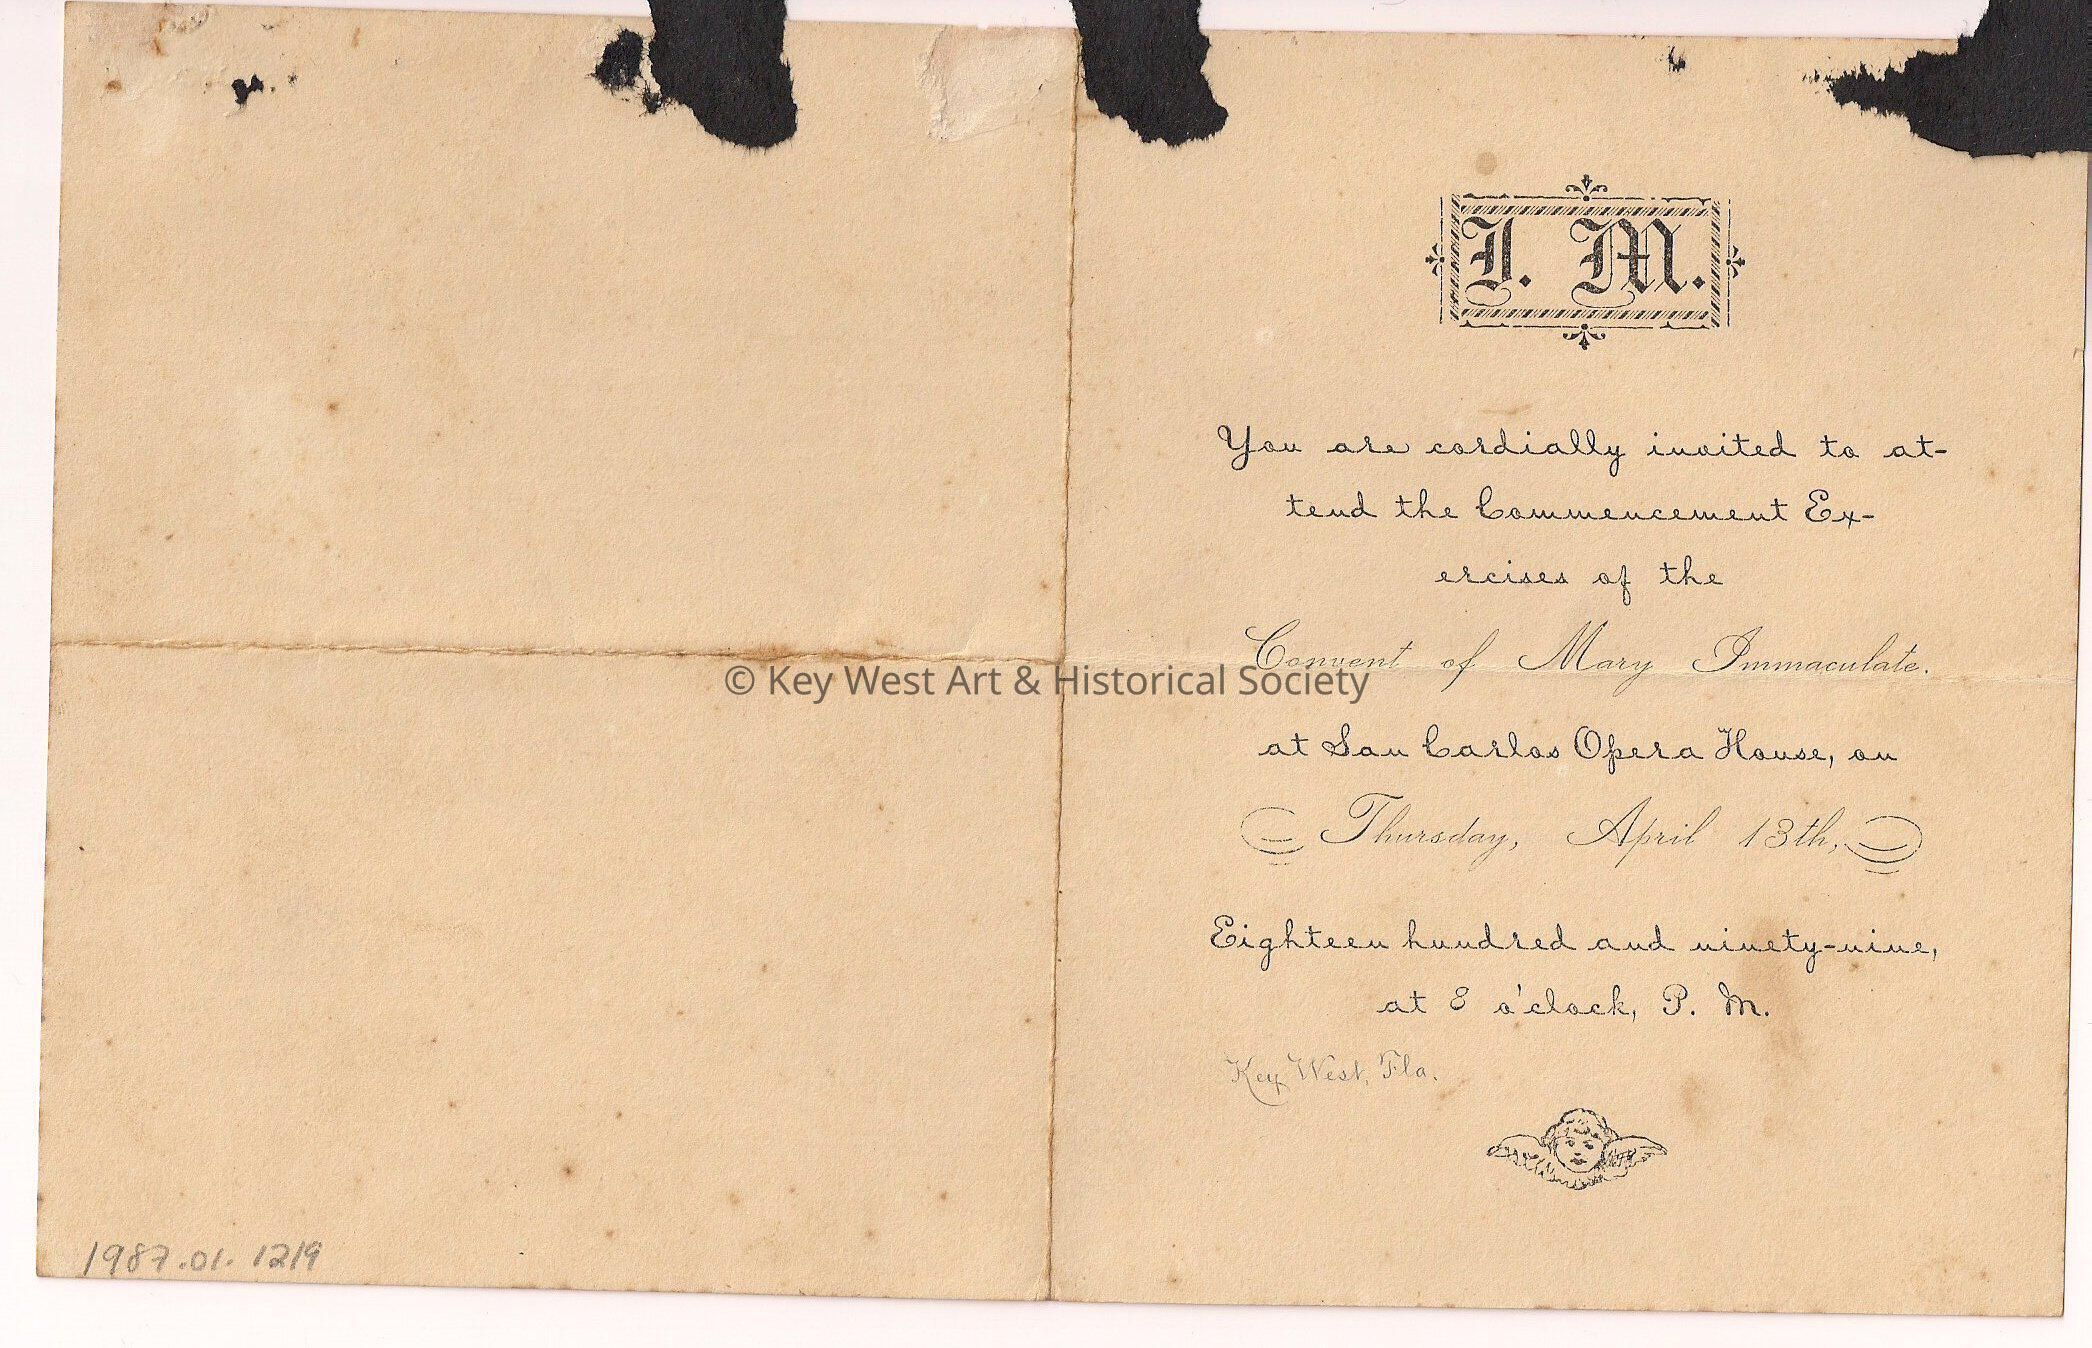 J. M.
You are cordially invited to at-
tend the Commencement Ex-
ercises of the
Convent of Mary Immaculate.
© Key West Art & Historical Society
at San Carlos Opera House, on
Thursday, April 13th,
Eighteen hundred and ninety-nine,
at 8 o'clock, P. M.
Key West, Fla.
1987.01.1219